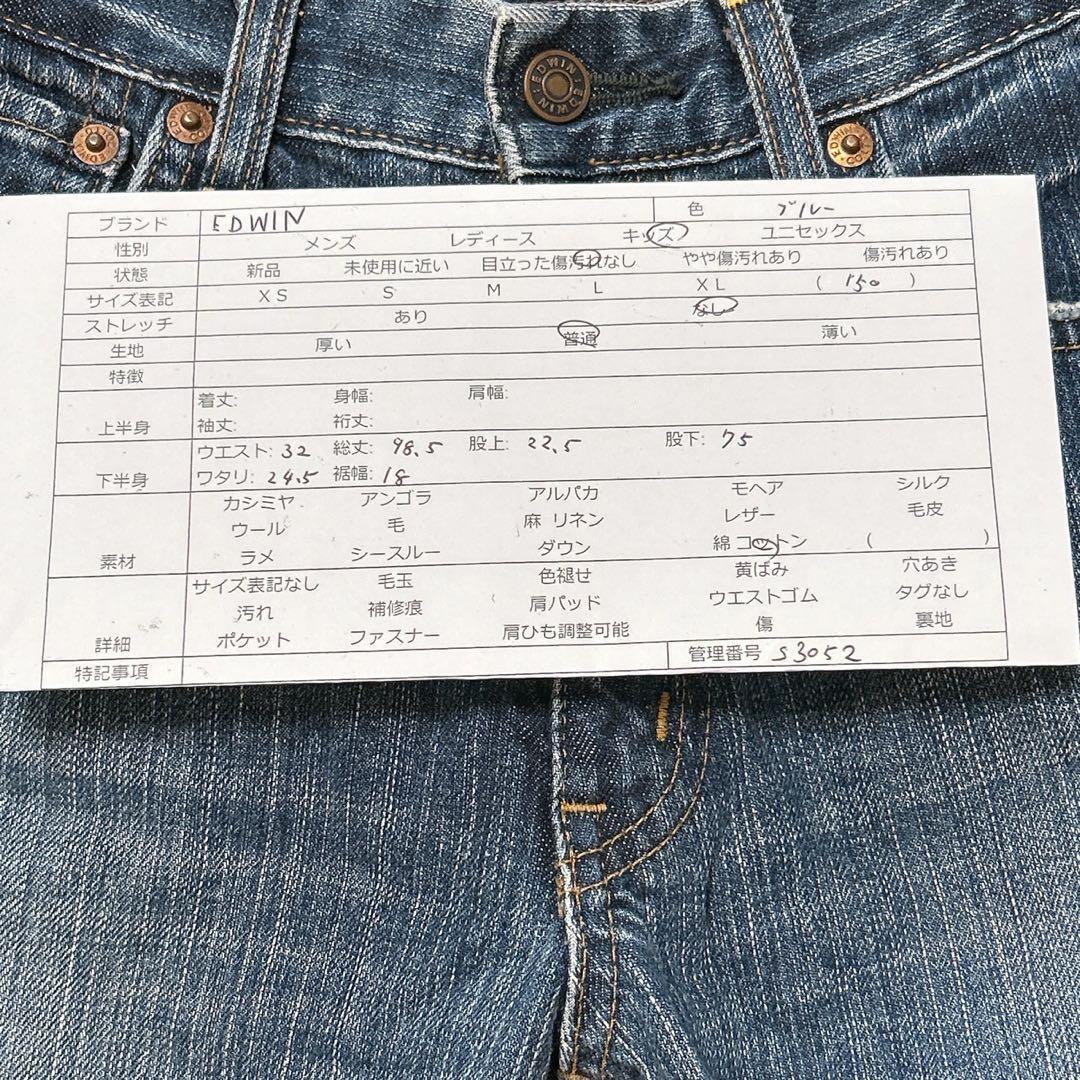 EDWIN · EDWIN ·
ブランド EDWIN 色 ブルー
性別 メンズ レディース キッズ ユニセックス
状態 新品 未使用に近い 目立った傷汚れなし やや傷汚れあり 傷汚れあり
サイズ表記 XS S M L XL ( 150 )
ストレッチ あり なし
生地 厚い 普通 薄い
特徴
上半身 着丈: 身幅: 肩幅:
袖丈: 裄丈:
下半身 ウエスト: 32 総丈: 98.5 股上: 22.5 股下: 75
ワタリ: 24.5 裾幅: 18
素材 カシミヤ アンゴラ アルパカ モヘア シルク
ウール 毛 麻 リネン レザー 毛皮
ラメ シースルー ダウン 綿 コットン ( )
詳細 サイズ表記なし 毛玉 色褪せ 黄ばみ 穴あき
汚れ 補修痕 肩パッド ウエストゴム タグなし
ポケット ファスナー 肩ひも調整可能 傷 裏地
特記事項 管理番号 S3052